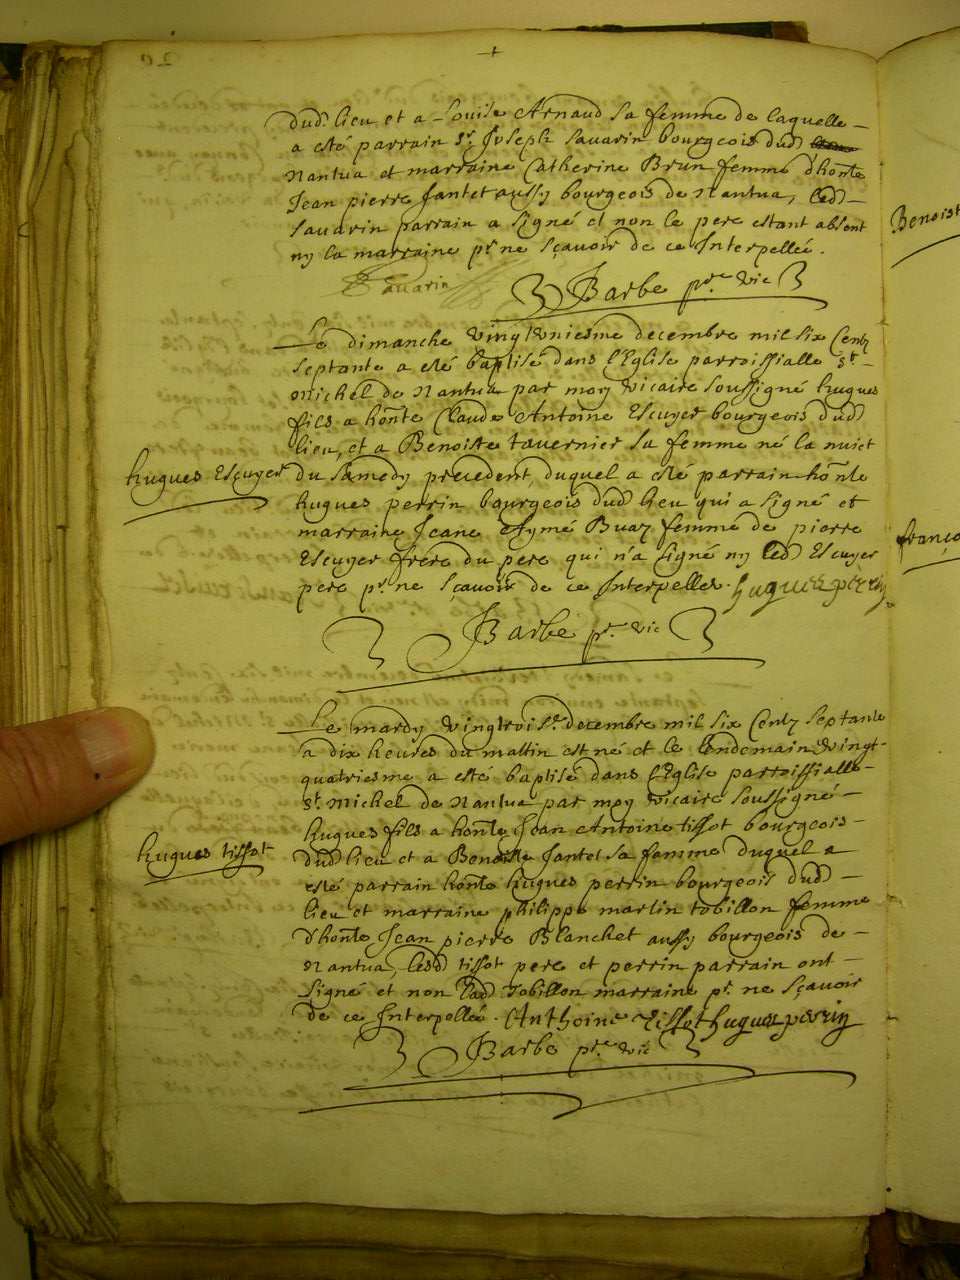 dud. lieu et a Louise Arnaud sa femme de laquelle
a esté parrain Sr. Joseph Savarin bourgeois dud.
Nantua et marraine Catherine Brun femme d'honte
Jean pierre Jantet aussy bourgeois de Nantua, led.
Savarin parrain a signé et non le pere estant absent
ny la marraine pr. ne sçavoir de ce Interpellée.
Savarin
Barbe pre. vic
Le dimanche vingtuniesme decembre mil six Centz
septante a esté baptisé dans l'Eglise parroissialle St.
Michel de Nantua par moy vicaire soussigné hugues
fils a honte Claude Antoine Escuyer bourgeois dud.
lieu, et a Benoiste tavernier sa femme né la nuict
hugues Escuyer
du Samedy precedent, duquel a esté parrain honte
hugues perrin bourgeois dud. lieu qui a signé et
marraine Jeane Aymé Buaz femme de pierre
Escuyer frere du pere qui n'a signé ny led. Escuyer
pere pr. ne sçavoir de ce Interpellez. hugues perrin
Barbe pr. vic
Le mardy vingtroise. decembre mil six Centz septante
a dix heures du mattin est né et le lendemain vingt-
quatriesme a esté baptisé dans l'Eglise parroissialle
St. Michel de Nantua par moy vicaire soussigné
hugues fils a honte Jean Antoine tissot bourgeois
hugues tissot
dud. lieu et a Benoiste Jantet sa femme duquel a
esté parrain honte hugues perrin bourgeois dud.
lieu et marraine philippe marlin tobillon femme
d'honte Jean pierre Blanchet aussy bourgeois de
Nantua, lesd. tissot pere et perrin parrain ont
signé et non lad. tobillon marraine pr. ne sçavoir
de ce Interpellée. Anthoine Tissot hugues perrin
Barbe pre. vic
Benoist
franço